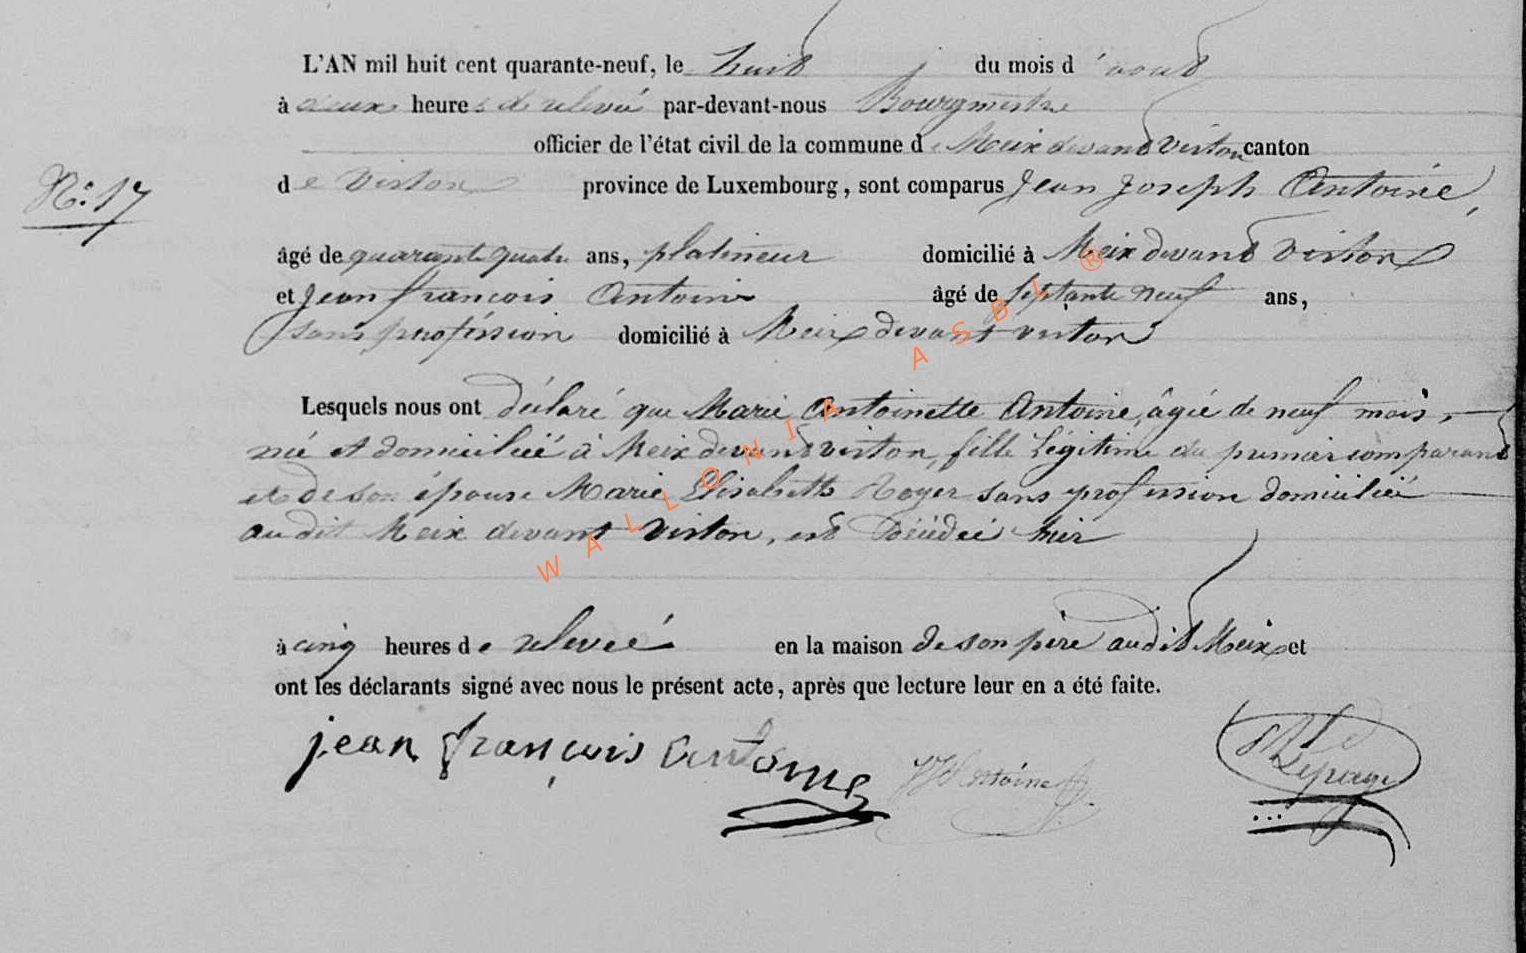 L'AN mil huit cent quarante-neuf, le huit du mois d'aout
à deux heures de relevée par-devant-nous Bourgmestre
officier de l'état civil de la commune de Meix devant Virton canton
N° 17
de Virton province de Luxembourg, sont comparus Jean Joseph Antoine,
âgé de quarante quatre ans, platineur domicilié à Meix devant Virton
et Jean françois Antoine âgé de septante neuf ans,
sans profession domicilié à Meix devant virton
Lesquels nous ont déclaré que Marie Antoinette Antoine, âgée de neuf mois,
née et domiciliée à Meix devant virton, fille légitime du premier comparant
et de son épouse Marie Elisabeth Roger sans profession domiciliée
audit Meix devant Virton, est Décédée hier
à cinq heures de relevée en la maison de son père audit Meix et
ont les déclarants signé avec nous le présent acte, après que lecture leur en a été faite.
jean françois antoine JJAntoine Lepage
WALLONIA ASBL ®